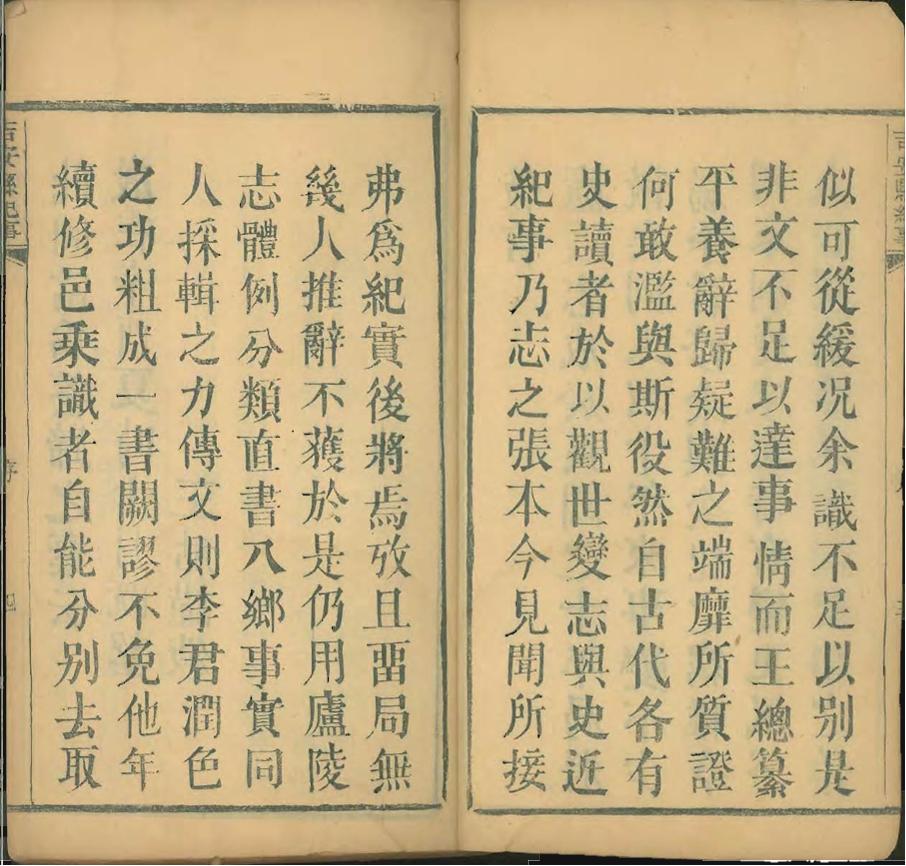 吉安縣紀事
似可從緩況余識不足以別是
非文不足以達事情而王總纂
平養辭歸疑難之端靡所質證
何敢濫與斯役然自古代各有
史讀者於以觀世變志與史近
紀事乃志之張本今見聞所接
弗爲紀實後將焉攷且畱局無
幾人推辭不獲於是仍用廬陵
志體例分類直書八鄉事實同
人採輯之力傳文則李君潤色
之功粗成一書闕謬不免他年
續修邑乗識者自能分别去取
吉安縣紀事
序
四